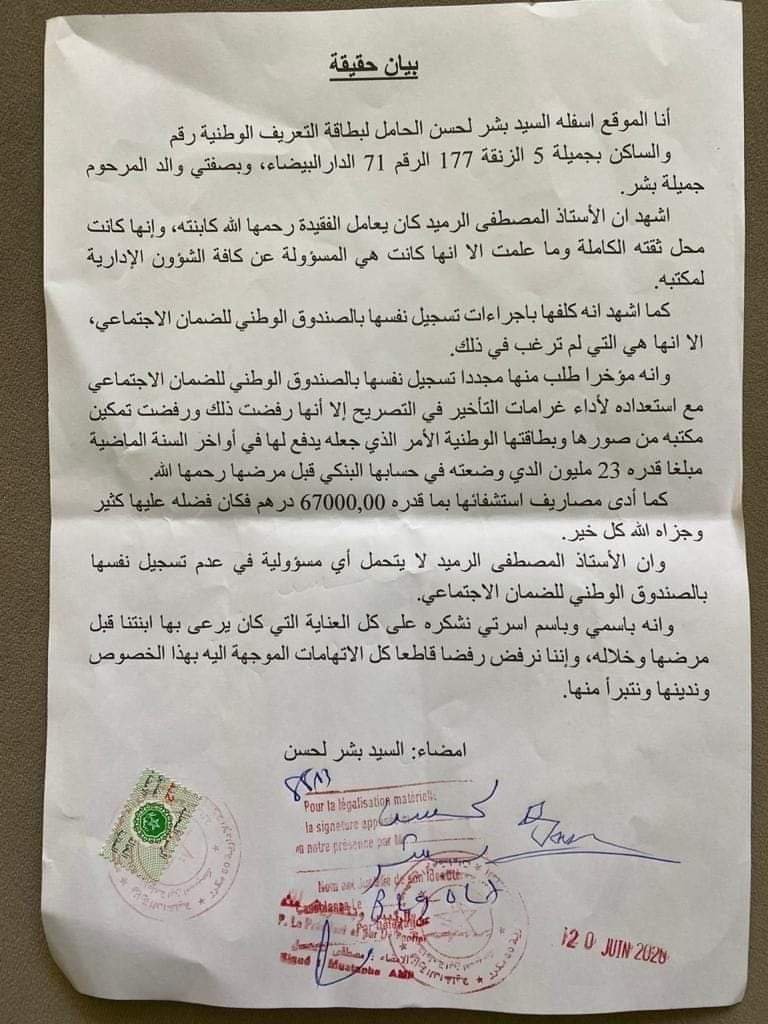 بيان حقيقة
أنا الموقع اسفله السيد بشر لحسن الحامل لبطاقة التعريف الوطنية رقم
والساكن بجميلة 5 الزنقة 177 الرقم 71 الدارالبيضاء، وبصفتي والد المرحوم
جميلة بشر.
اشهد ان الأستاذ المصطفى الرميد كان يعامل الفقيدة رحمها الله كابنته، وإنها كانت
محل ثقته الكاملة وما علمت الا انها كانت هي المسؤولة عن كافة الشؤون الإدارية
لمكتبه.
كما اشهد انه كلفها باجراءات تسجيل نفسها بالصندوق الوطني للضمان الاجتماعي،
الا انها هي التي لم ترغب في ذلك.
وانه مؤخرا طلب منها مجددا تسجيل نفسها بالصندوق الوطني للضمان الاجتماعي
مع استعداده لأداء غرامات التأخير في التصريح إلا أنها رفضت ذلك ورفضت تمكين
مكتبه من صورها وبطاقتها الوطنية الأمر الذي جعله يدفع لها في أواخر السنة الماضية
مبلغا قدره 23 مليون الدي وضعته في حسابها البنكي قبل مرضها رحمها الله.
كما أدى مصاريف استشفائها بما قدره 67000,00 درهم فكان فضله عليها كثير
وجزاه الله كل خير.
وان الأستاذ المصطفى الرميد لا يتحمل أي مسؤولية في عدم تسجيل نفسها
بالصندوق الوطني للضمان الاجتماعي.
وانه باسمي وباسم اسرتي نشكره على كل العناية التي كان يرعى بها ابنتنا قبل
مرضها وخلاله، وإننا نرفض رفضا قاطعا كل الاتهامات الموجهة اليه بهذا الخصوص
وندينها ونتبرأ منها.
امضاء: السيد بشر لحسن
Pour la légalisation matérielle
la signature app
en notre présence par M
de son identité
Casablanca Le
20 JUIN 2020